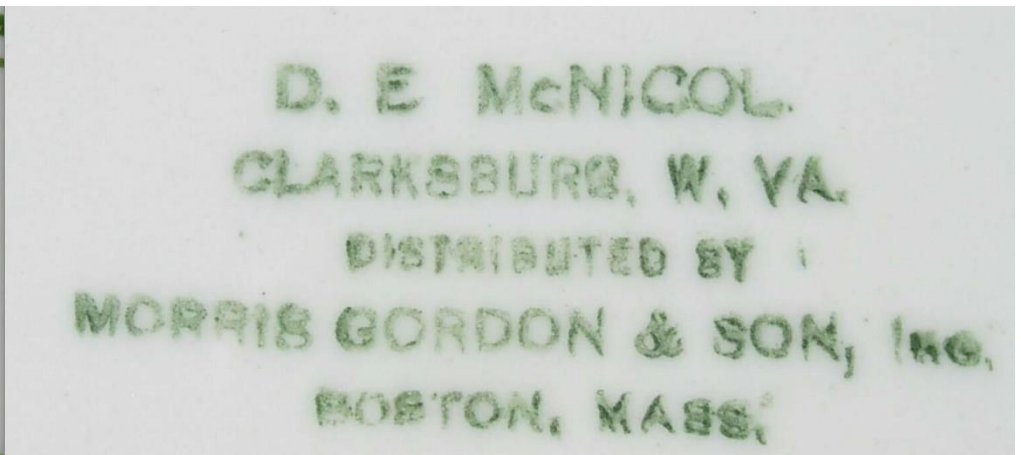 D. E McNICOL.
CLARKSBURG, W. VA.
DISTRIBUTED BY
MORRIS GORDON & SON, INC.
BOSTON, MASS.